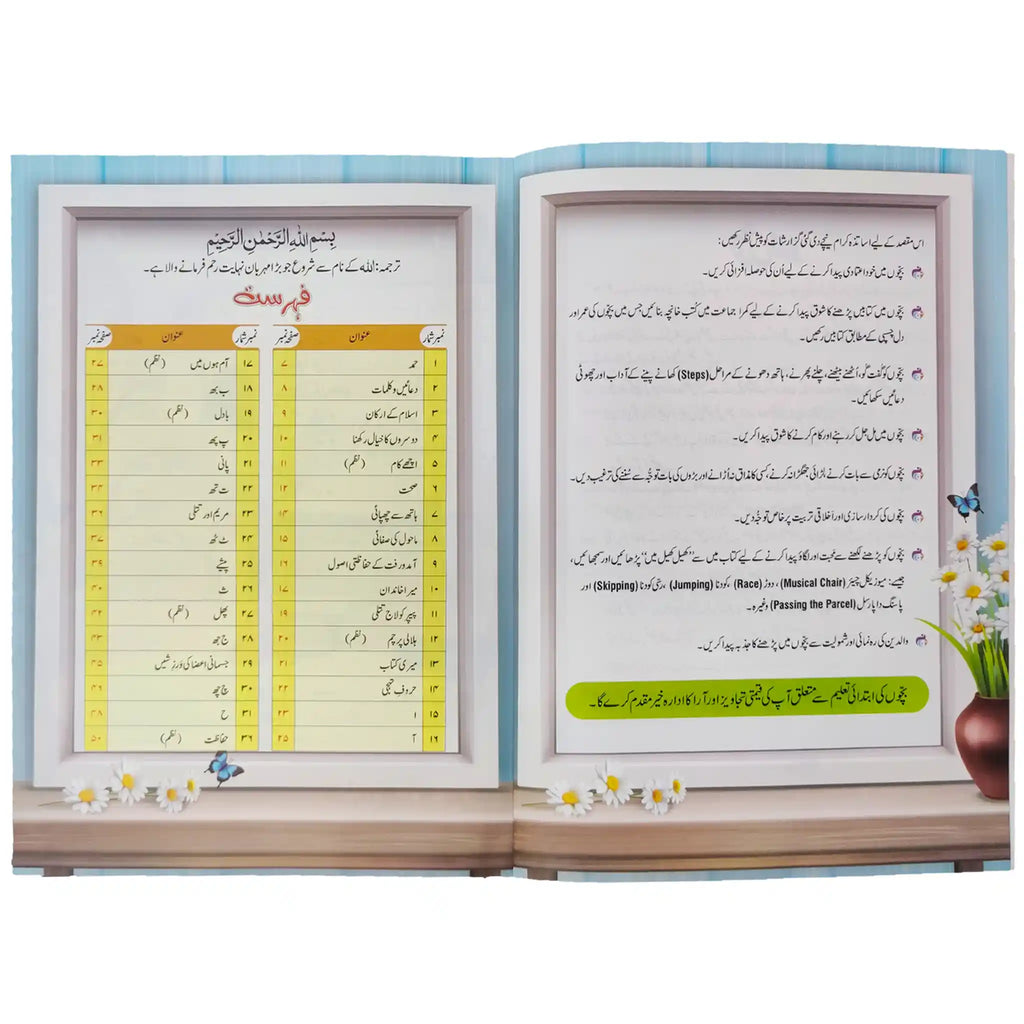 اس مقصد کے لیے اساتذہ کرام نیچے دی گئی گزارشات کو پیشِ نظر رکھیں:
بچّوں میں خود اعتمادی پیدا کرنے کے لیے اُن کی حوصلہ افزائی کریں۔
بچّوں میں کتابیں پڑھنے کا شوق پیدا کرنے کے لیے کمرا جماعت میں کُتب خانچہ بنائیں جس میں بچّوں کی عمر اور
دل چسپی کے مطابق کتابیں رکھیں۔
بچّوں کو گفت گو، اُٹھنے بیٹھنے، چلنے پھرنے، ہاتھ دھونے کے مراحل (Steps) کھانے پینے کے آداب اور چھوٹی
دعائیں سکھائیں۔
بچّوں میں مل جل کر رہنے اور کام کرنے کا شوق پیدا کریں۔
بچّوں کو نرمی سے بات کرنے، لڑائی جھگڑا نہ کرنے، کسی کا مذاق نہ اُڑانے اور بڑوں کی بات توجّہ سے سُننے کی ترغیب دیں۔
بچّوں کی کردار سازی اور اَخلاقی تربیت پر خاص توجّہ دیں۔
بچّوں کو پڑھنے لکھنے سے محبت اور لگاؤ پیدا کرنے کے لیے کتاب میں سے ”کھیل کھیل میں“ پڑھائیں اور سمجھائیں،
جیسے: میوزیکل چیئر (Musical Chair)، دوڑ (Race)، کودنا (Jumping)، رسی کودنا (Skipping) اور
پاسنگ دا پارسل (Passing the Parcel) وغیرہ۔
والدین کی رہ نمائی اور شمولیت سے بچّوں میں پڑھنے کا جذبہ پیدا کریں۔
بچّوں کی ابتدائی تعلیم سے متعلق آپ کی قیمتی تجاویز اور آرا کا ادارہ خیر مقدم کرے گا۔
بِسْمِ اللهِ الرَّحْمٰنِ الرَّحِيْمِ
ترجمہ: اللہ کے نام سے شروع جو بڑا مہربان نہایت رحم فرمانے والا ہے۔
فہرست
نمبر شمار عنوان صفحہ نمبر
۱ حمد ۷
۲ دعائیں و کلمات ۸
۳ اسلام کے ارکان ۹
۴ دوسروں کا خیال رکھنا ۱۰
۵ اچھے کام (نظم) ۱۱
۶ صحت ۱۲
۷ ہاتھ سے چھپائی ۱۴
۸ ماحول کی صفائی ۱۵
۹ آمدورفت کے حفاظتی اصول ۱۶
۱۰ میرا خاندان ۱۷
۱۱ پیپر کولاج تتلی ۱۹
۱۲ ہلالی پرچم (نظم) ۲۰
۱۳ میری کتاب ۲۱
۱۴ حروفِ تہجی ۲۲
۱۵ ا ۲۳
۱۶ آ ۲۵
نمبر شمار عنوان صفحہ نمبر
۱۷ آم ہوں میں (نظم) ۲۷
۱۸ ب بھ ۲۸
۱۹ بادل (نظم) ۳۰
۲۰ پ پھ ۳۱
۲۱ پانی ۳۳
۲۲ ت تھ ۳۴
۲۳ مریم اور تتلی ۳۶
۲۴ ٹ ٹھ ۳۷
۲۵ پیشے ۳۹
۲۶ ث ۴۰
۲۷ پھل (نظم) ۴۲
۲۸ ج جھ ۴۳
۲۹ جسمانی اعضا کی ورزشیں ۴۵
۳۰ چ چھ ۴۶
۳۱ ح ۴۸
۳۶ حفاظت (نظم) ۵۰